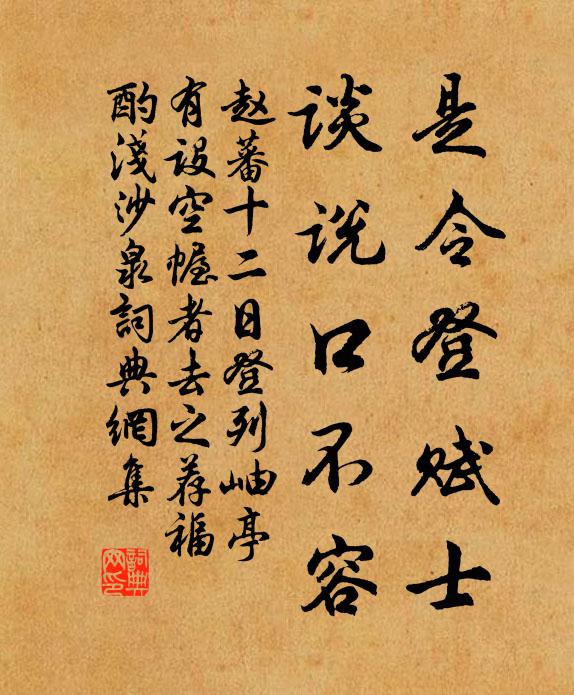 是令登赋士
谈说口不容
赵蕃十二日登列岫亭
有设空幄者去之荐福
酌淺沙泉詞典網集
詞典网印